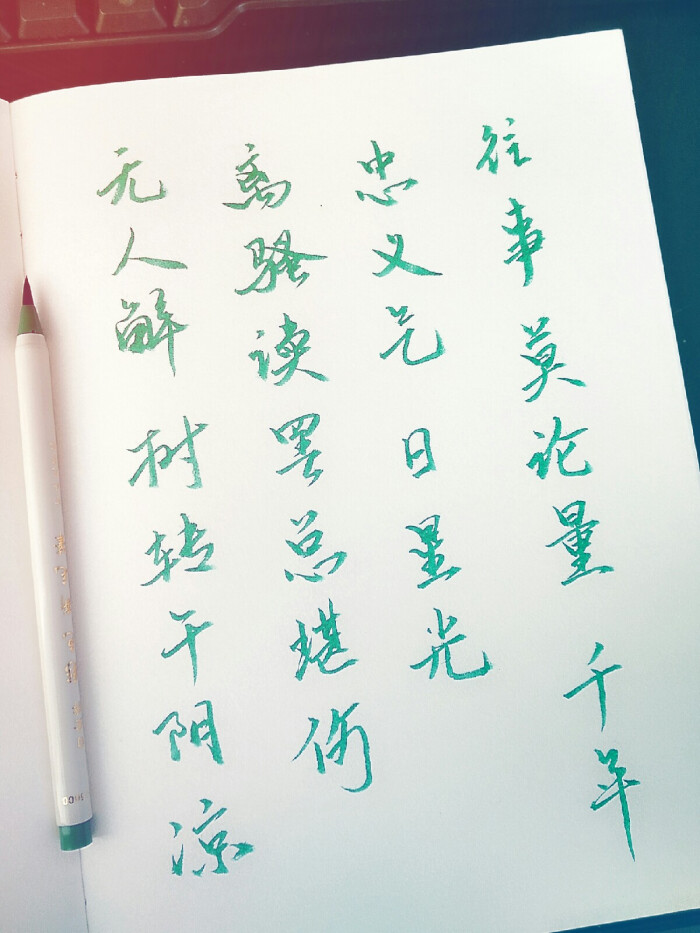 往事莫论量 千年
忠义气 日星光
离骚读罢总堪伤
无人解 树转午阴凉